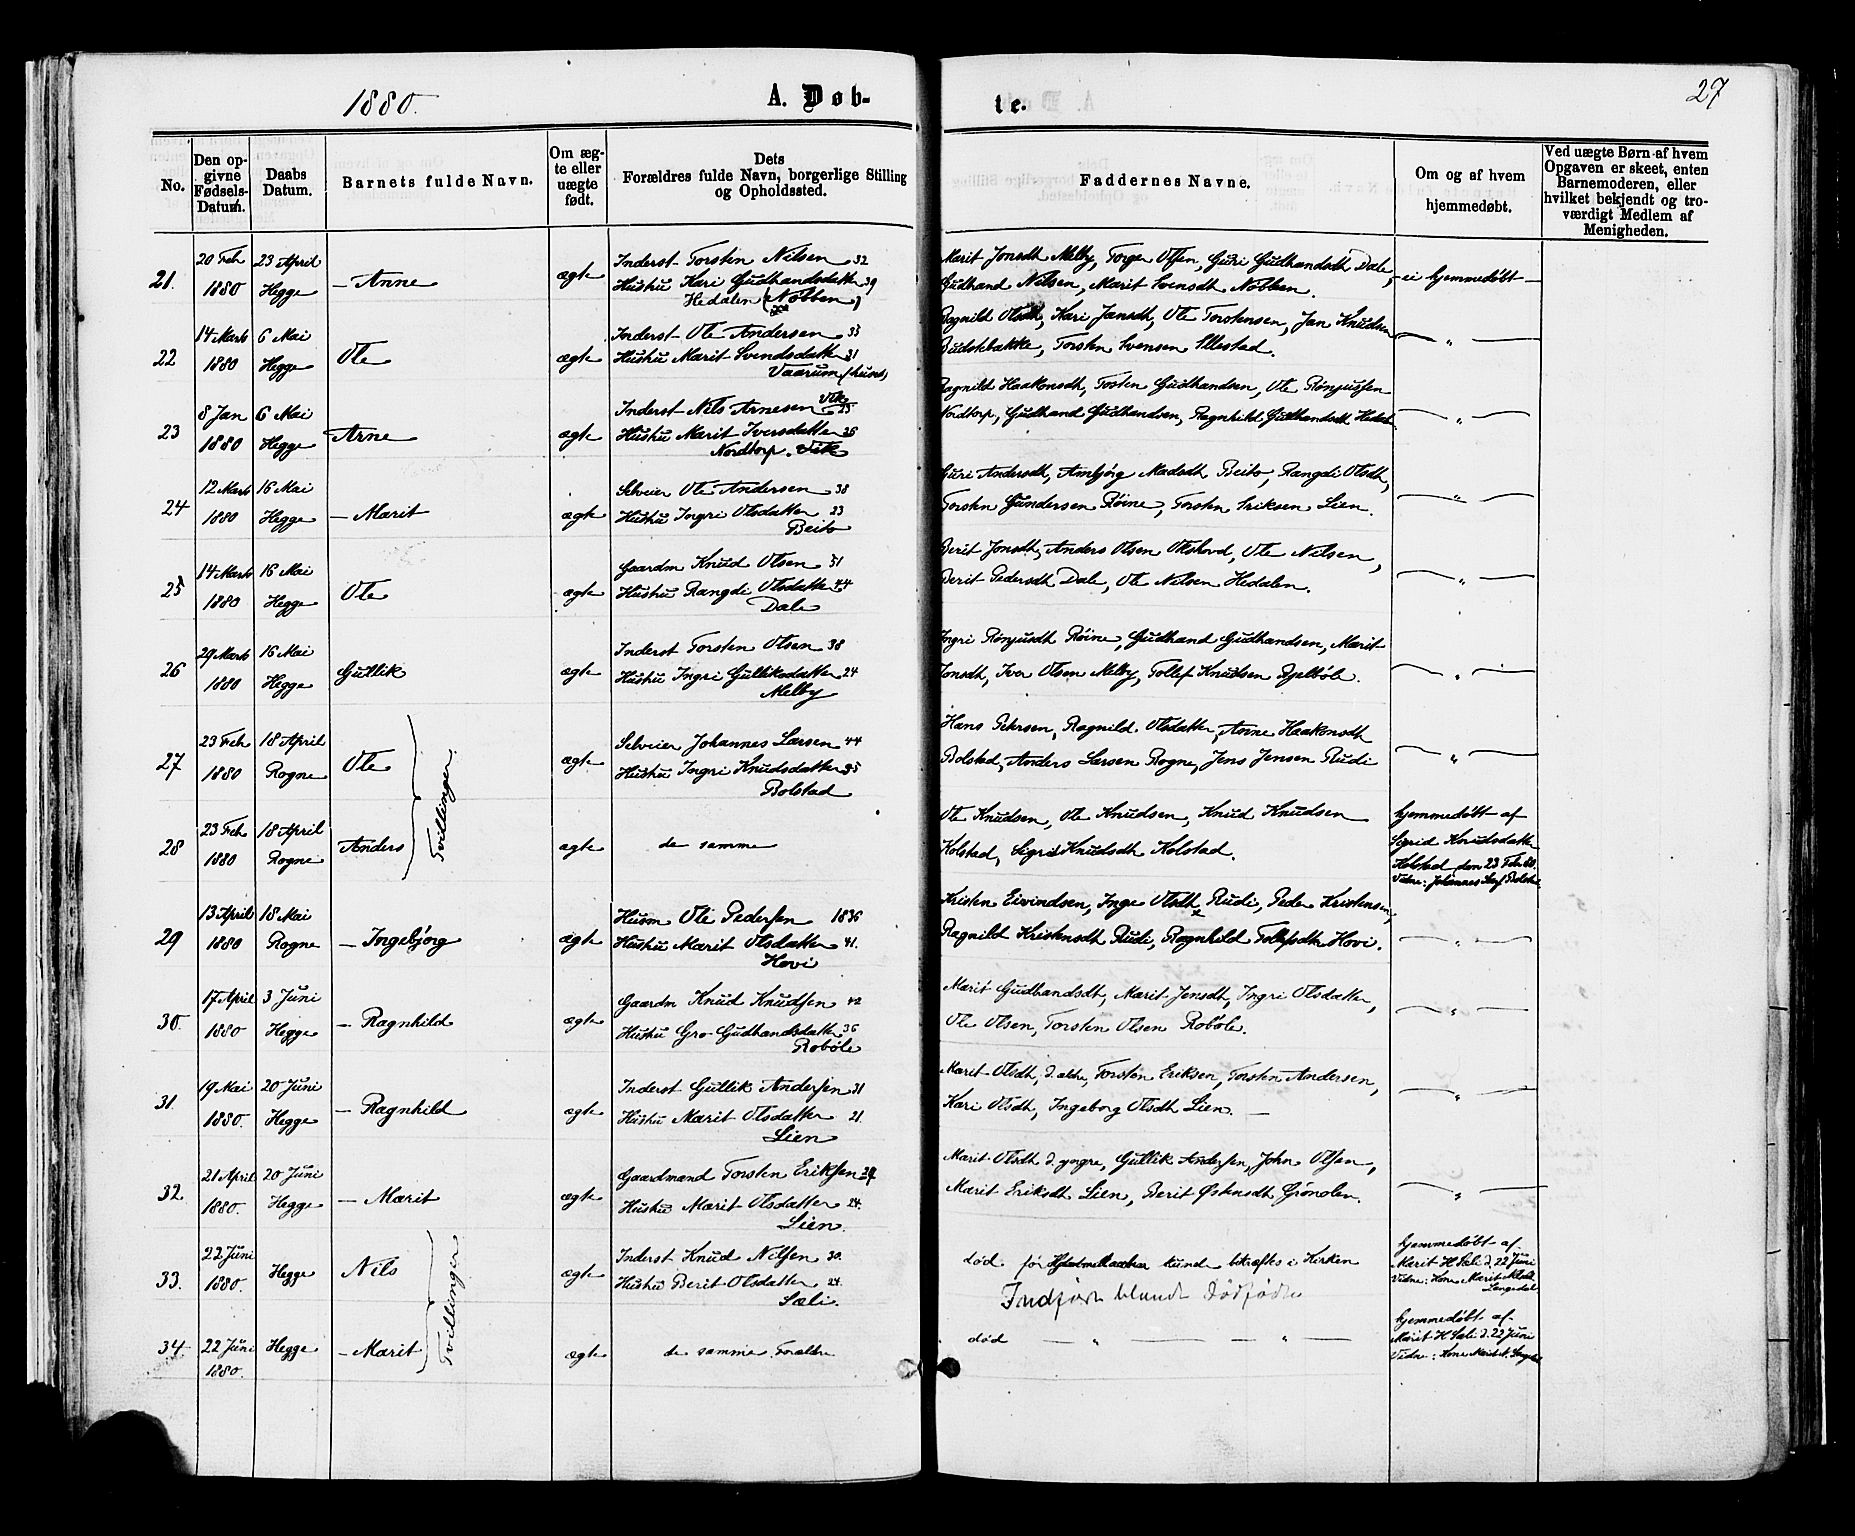 1880.
A. Døb-
te.
27
No.
Den op-
givne
Fødsels-
Datum.
Daabs
Datum.
Barnets fulde Navn.
Om æg-
te eller
uægte
født.
Dets
Forældres fulde Navn, borgerlige Stilling
og Opholdssted.
Faddernes Navne.
Om og af hvem
hjemmedøbt.
Ved uægte Børn af hvem
Opgaven er skeet, enten
Barnemoderen, eller
hvilket bekjendt og tro-
værdigt Medlem af
Menigheden.
21.
20 Feb
1880
23 April
Hegge
– Anne
ægte
Inderst Torsten Nilsen 32
Hustru Kari Gudhandsdatter 39
Hedalen (Nobben)
Marit Jonsdt Melby, Torger Olsen, Guri Gudhandsdt Dale,
Gudhand Nilsen, Marit Svensdt Nobben.
ei hjemmedøbt –
22
14 Marts
1880
6 Mai
Hegge
Ole
ægte
Inderst Ole Andersen 33
Hustru Marit Svendsdatter 31
Vaarum
Ragnild Olsdt, Kari Jansdt, Ole Torstensen, Jan Knudsen
Torsten Svensen
— " —
23
8 Jan
1880
6 Mai
Hegge
Arne
ægte
Inderst Nils Arnesen Vik
Hustru Marit Iversdatter 26
Nordtorp. Vik
Ragnild Haakensdt, Torsten Gudhandsen, Ole Rønjussen
Nordtorp, Gudhand Gudhandsen, Ragnhild Gudhandsdt
— " —
24
12 Marts
1880
16 Mai
Hegge
– Marit
ægte
Selveier Ole Andersen 38
Hustru Ingri Olsdatter 23
Beito
Guri Andersdt, Ambjørg Madsdt Beito, Rangdi Olsdt,
Torsten Gundersen Røine, Torsten Eriksen Lien.
— " —
25
14 Marts
1880
16 Mai
Hegge
Ole
ægte
Gaardm Knud Olsen 51
Hustru Rangdi Olsdatter 44
Dale
Berit Jonsdt, Anders Olsen Okshovd, Ole Nilsen,
Berit Pedersdt Dale, Ole Nilsen Hedalen.
— " —
26
29 Marts
1880
16 Mai
Hegge
Gullik
ægte
Inderst Torsten Olsen 38
Hustru Ingri Gulliksdatter 24
Melby
Ingri Rønjusdt Røine, Gudhand Gudhandsen, Marit
Jonsdt, Iver Olsen Melby, Tollef Knudsen Bjelbøle.
— " —
27
23 Feb
1880
18 April
Rogne
Ole
Tvillinger
ægte
Selveier Johannes Larsen 44
Hustru Ingri Knudsdatter 35
Bolstad
Hans Pettersen, Ragnild Olsdatter, Anne Haakensdt
Bolstad, Anders Larsen Rogne, Jens Jensen Rudi
— " —
28
23 Feb
1880
18 April
Rogne
Anders
ægte
de samme
Ole Knudsen, Ole Knudsen, Knud Knudsen
Kolstad, Sigrid Knudsdt Kolstad.
hjemmedøbt af
Sigrid Knudsdatter
Kolstad den 23 Feb 80.
Vidne: Johannes Bolstad
29
13 April
1880
18 Mai
Rogne
– Ingebjørg
ægte
Husm Ole Pedersen 1836
Hustru Marit Olsdatter 41.
Hovi
Kristen Eivindsen, Inge Olsdt Rudi, Peder Kristensen,
Ragnild Kristensdt Rudi, Ragnhild Tollefsdtr Hovi.
— " —
30.
17 April
1880
3 Juni
Hegge
– Ragnhild
ægte
Gaardm Knud Knudsen 42
Hustru Gro Gudhandsdatter 36
Robøle
Marit Gudhandsdt, Marit Jensdt, Ingri Olsdatter,
Ole Olsen, Torsten Olsen Robøle.
— " —
31.
19 Mai
1880.
20 Juni
Hegge
– Ragnhild
ægte
Inderst Gullik Andersen 31
Hustru Marit Olsdatter 21.
Lien
Marit Olsdt, d. ældre, Torsten Eriksen, Torsten Andersen,
Kari Olsdt, Ingeborg Olsdt Lien. —
— " —
32.
21 April
1880.
20 Juni
Hegge
– Marit
ægte
Gaardmand Torsten Eriksen
Hustru Marit Olsdatter 24.
Lien.
Marit Olsdt d. yngre, Gullik Andersen, John Olsen,
Marit Eriksdt Lien, Berit Østensdt Grønolen.
— " —
33.
22 Juni
1880.
Hegge
Nils
Tvillinger
ægte
Inderst Knud Nilsen 30.
Hustru Berit Olsdatter 24.
Sæli.
død før kunde bekræftes i Kirken
Indført blandt Dødfødte
hjemmedøbt af
Marit H Sæli d. 22 Juni
Vidne: Kone Marit
34.
22 Juni
1880.
Hegge
– Marit
ægte
de samme Forældre
død — " — — " —
hjemmedøbt af
Marit H Sæli d. 22 Juni
Vidne: Kone Marit N.